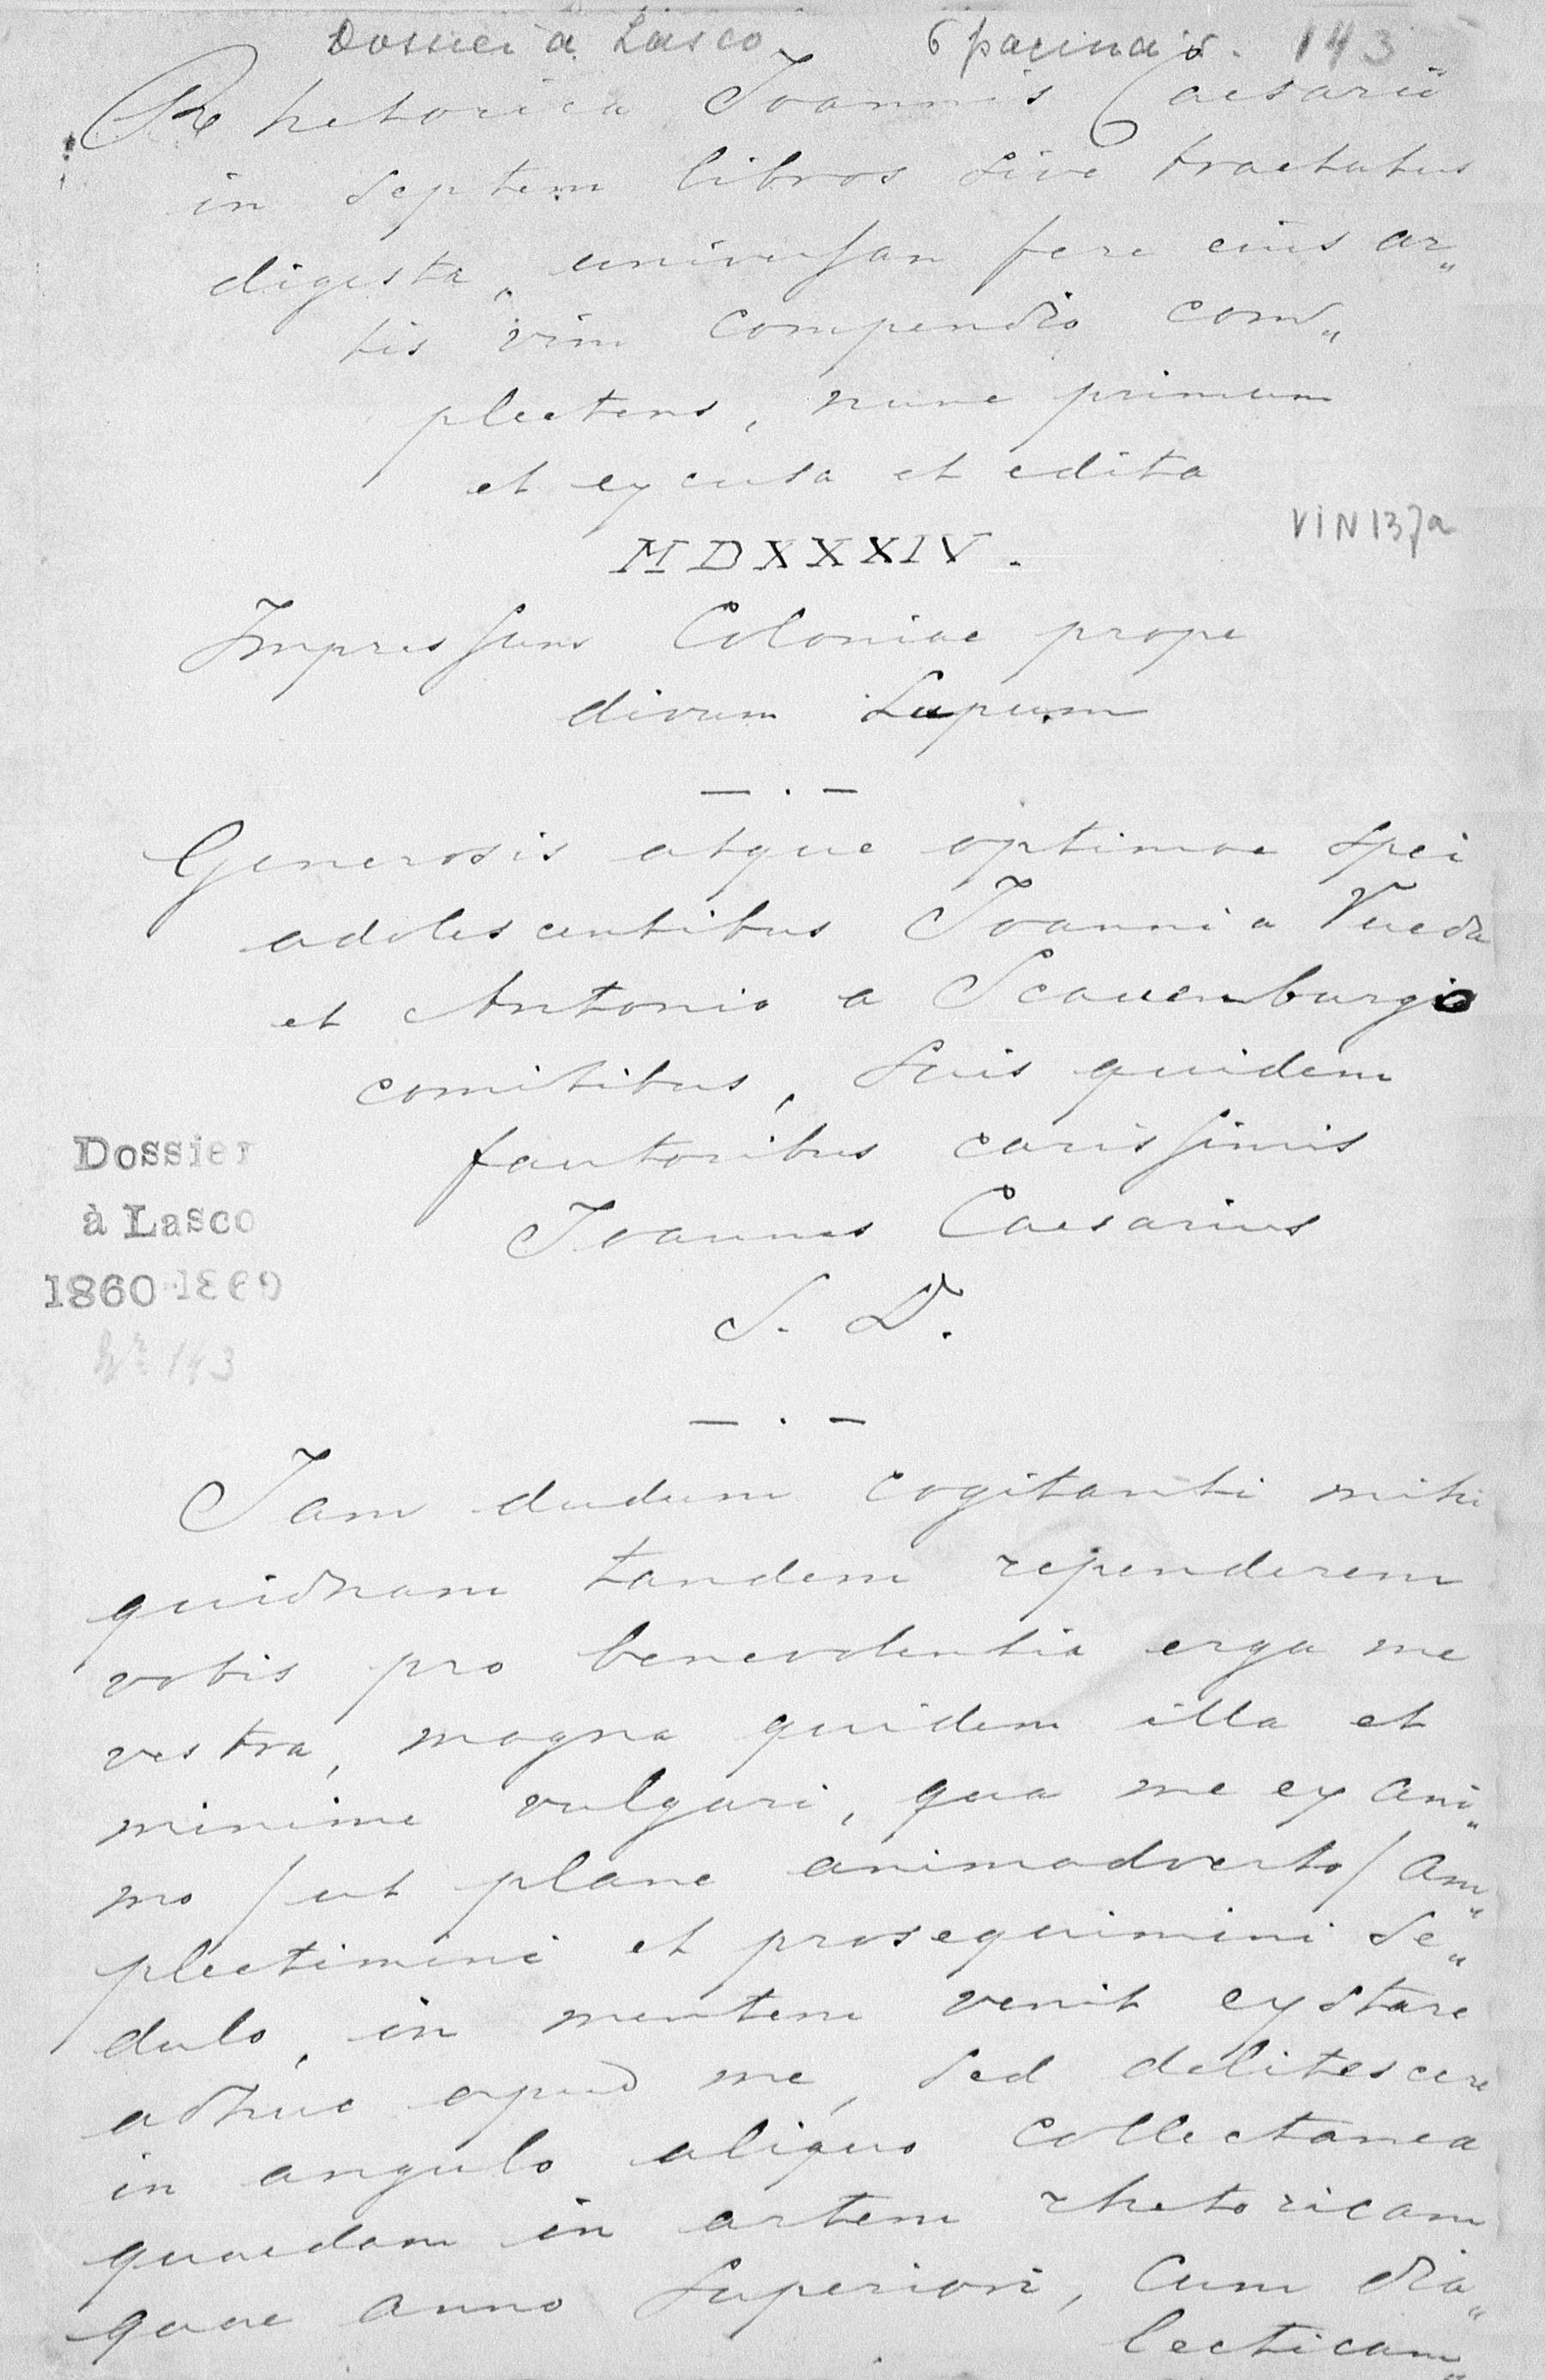 Dossier a Lasco 6 pagina's. 143
Rhetorica Joannis Caesarii
in septem libros sive tractatus
digesta, universam fere eius ar„
tis vim compendio com„
plectens, nunc primum
et excusa et edita
VIN137a
MDXXXIV.
Impressum Coloniae prope
divum Lupum
— . —
Generosis atque optimae spei
adolescentibus Joanni a Vueda
et Antonio a Scauenburgio
comitibus, suis quidem
fautoribus carissimis
Joannes Caesarius
S. D.
Dossier
à Lasco
1860-1869
No 143
— . —
Jam dudum cogitanti mihi
quidnam tandem rependerem
vobis pro benevolentia erga me
vestra, magna quidem illa et
minime vulgari, qua me ex ani„
mo / ut plane animadverto / am„
plectimini et prosequimini se„
dulo, in mentem venit exstare
adhuc apud me, sed delitescere
in angulo aliquo collectanea
quaedam in artem rhetoricam
quae anno superiori, cum dia„
lecticam„